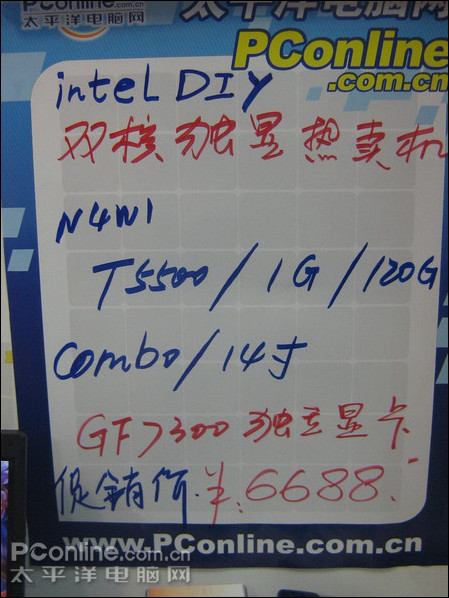 PConline.com.cn
太平洋电脑网
太平洋电脑网
PConline
.com.cn
intel DIY
双核独显热卖机
N4W1
T5500/1G/120G
Combo/14寸
GF7300独立显卡
促销价.¥:6688.-
www.PConline.com.cn
PConline.com.cn
太平洋电脑网